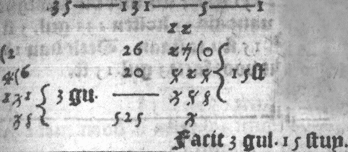 35 — 131 — 5 — 1
1 2
(2 26 2 7 (0
4 (6 20 5 2 5 15 ſt
1 3 1 3 gu. 3 5 5
3 5 525 3
Facit 3 gul. 15 ſtup.